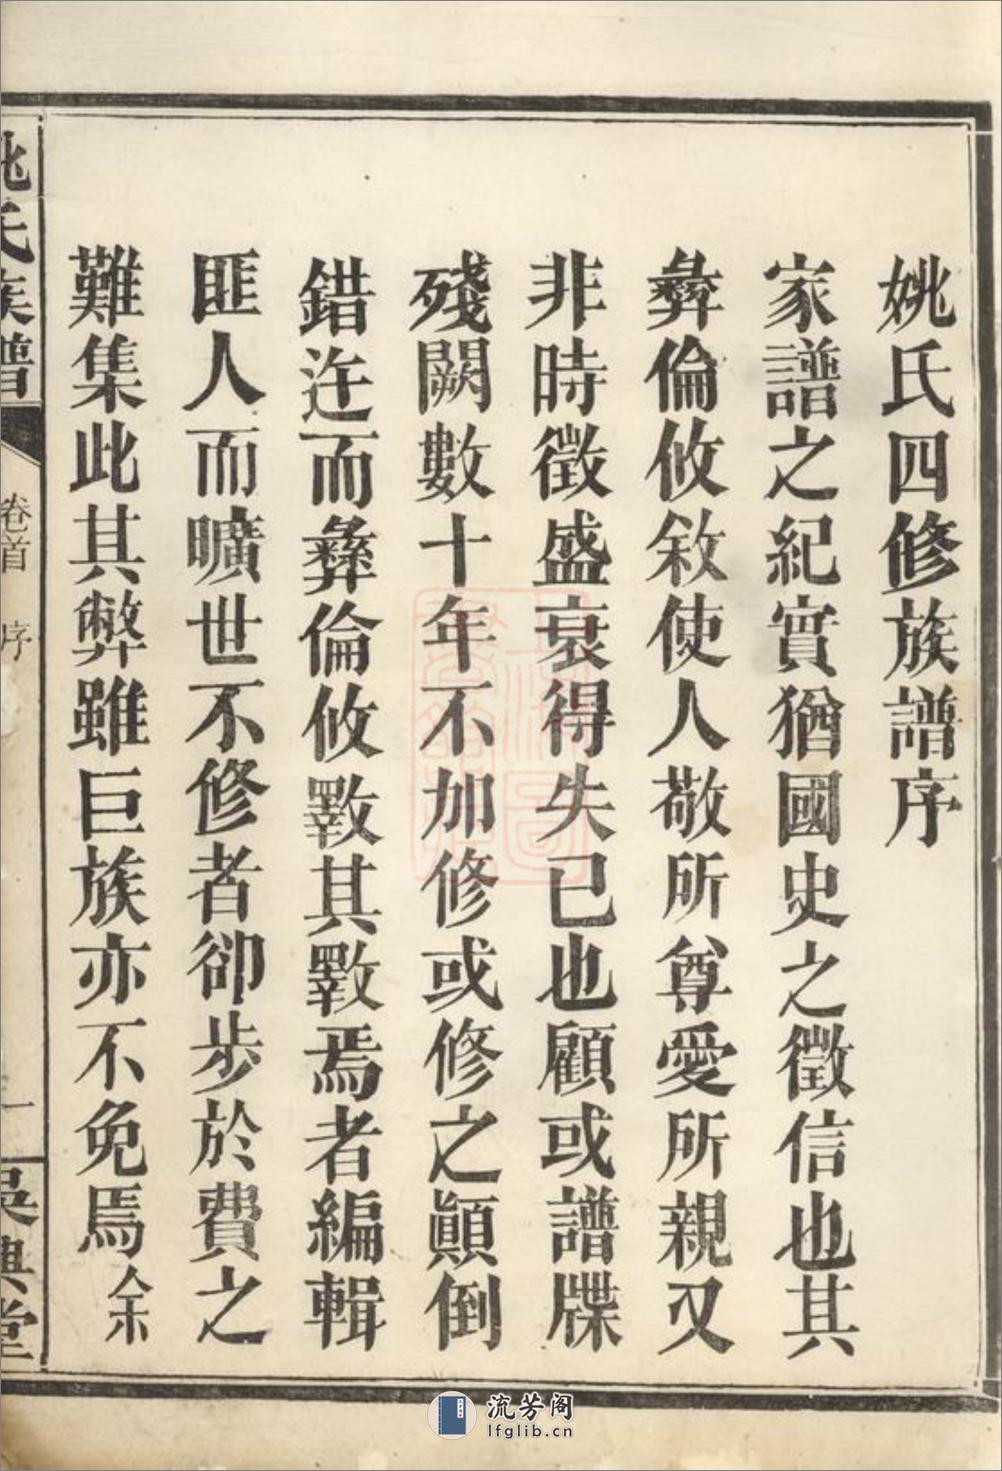 姚氏四修族譜序
家譜之紀實猶國史之徵信也其
彝倫攸敘使人敬所尊愛所親又
非時徵盛衰得失已也顧或譜牒
殘闕數十年不加修或修之顚倒
錯迕而彝倫攸斁其斁焉者編輯
匪人而曠世不修者卻步於費之
難集此其弊雖巨族亦不免焉余
姚氏族譜
卷首
序
一
吳興堂
流芳阁
lfglib.cn